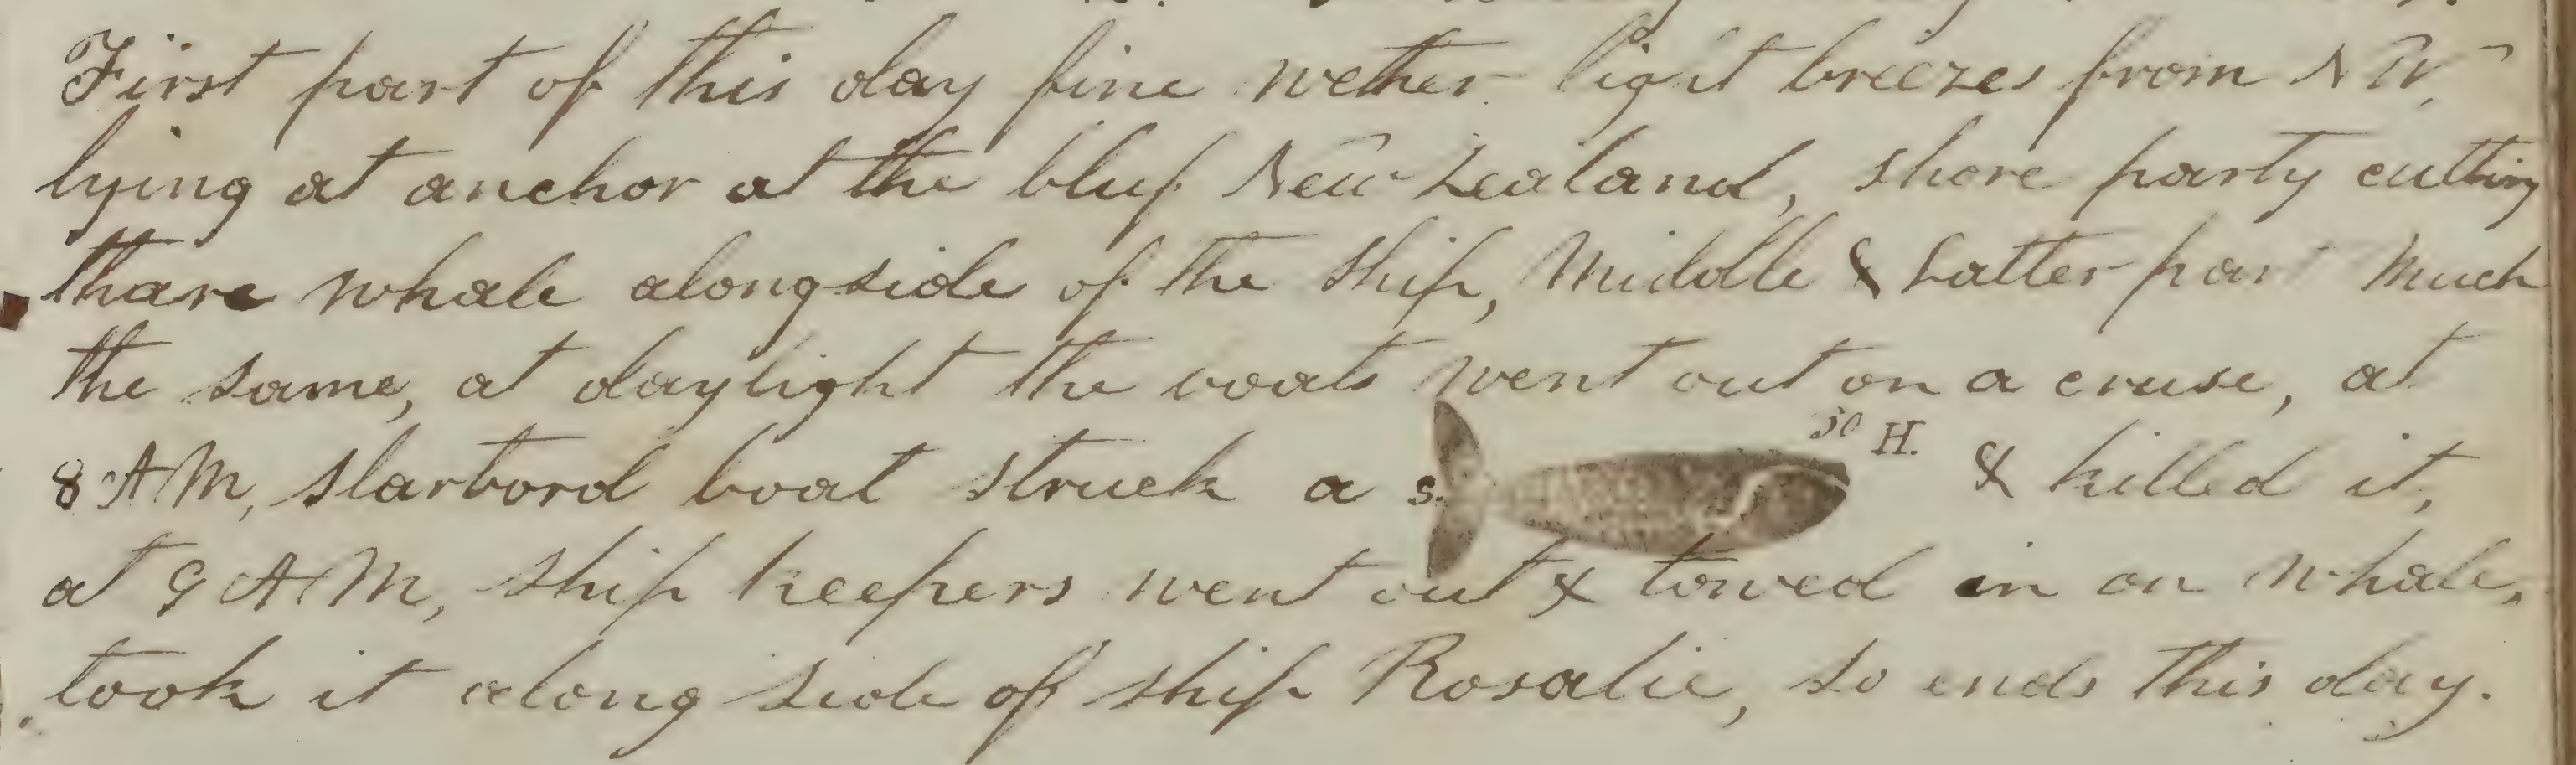 First part of this day fine wether light breezes from N W,
lying at anchor at the bluf New Zealand, shore party cutting
thare whale alongside of the ship, Middle & Latter part Much
the same, at daylight the boats went out on a cruse, at
8 AM, starbord boat struck a s. 50 H. & killed it,
at 9 AM, ship keepers went out & towed in on whale,
took it along side of ship Rosalie, so ends this day.